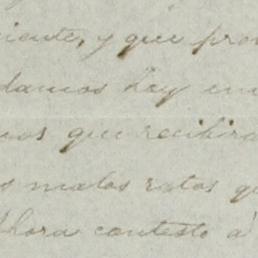 iente, y que pro
damos hoy en
mos que recibira
s malos ratos q
Ahora contesto á